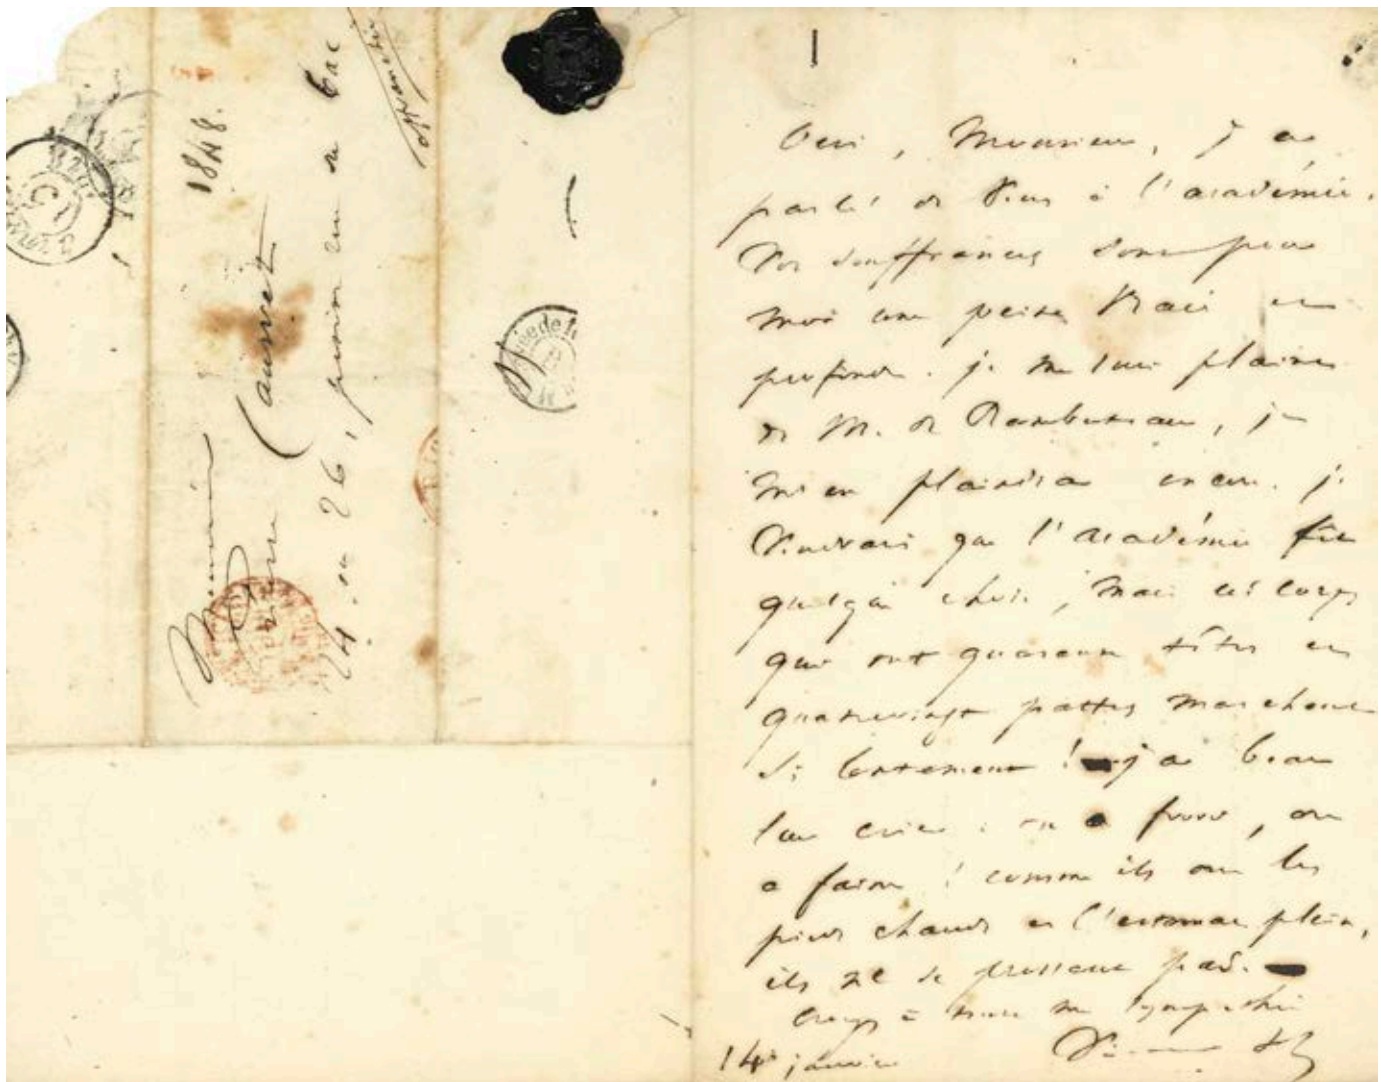 1848.
Monsieur
Pierre Cauwet
24 ou 26, passion rue du bac
affranchir
Oui, Monsieur, j'ai
parlé de vous à l'académie.
Vos souffrances sont pour
moi une peine vraie et
profonde. je me suis plaint
de M. de Rambuteau, je
m'en plaindrai encore. je
voudrais que l'académie fît
quelque chose ; mais ces corps
qui ont quarante têtes et
quatrevingt pattes marchent
si lentement ! j'ai beau
leur crier : on a froid, on
a faim ! comme ils ont les
pieds chauds et l'estomac plein,
ils ne se pressent pas.
Croyez à toute ma sympathie
14 janvier Victor H